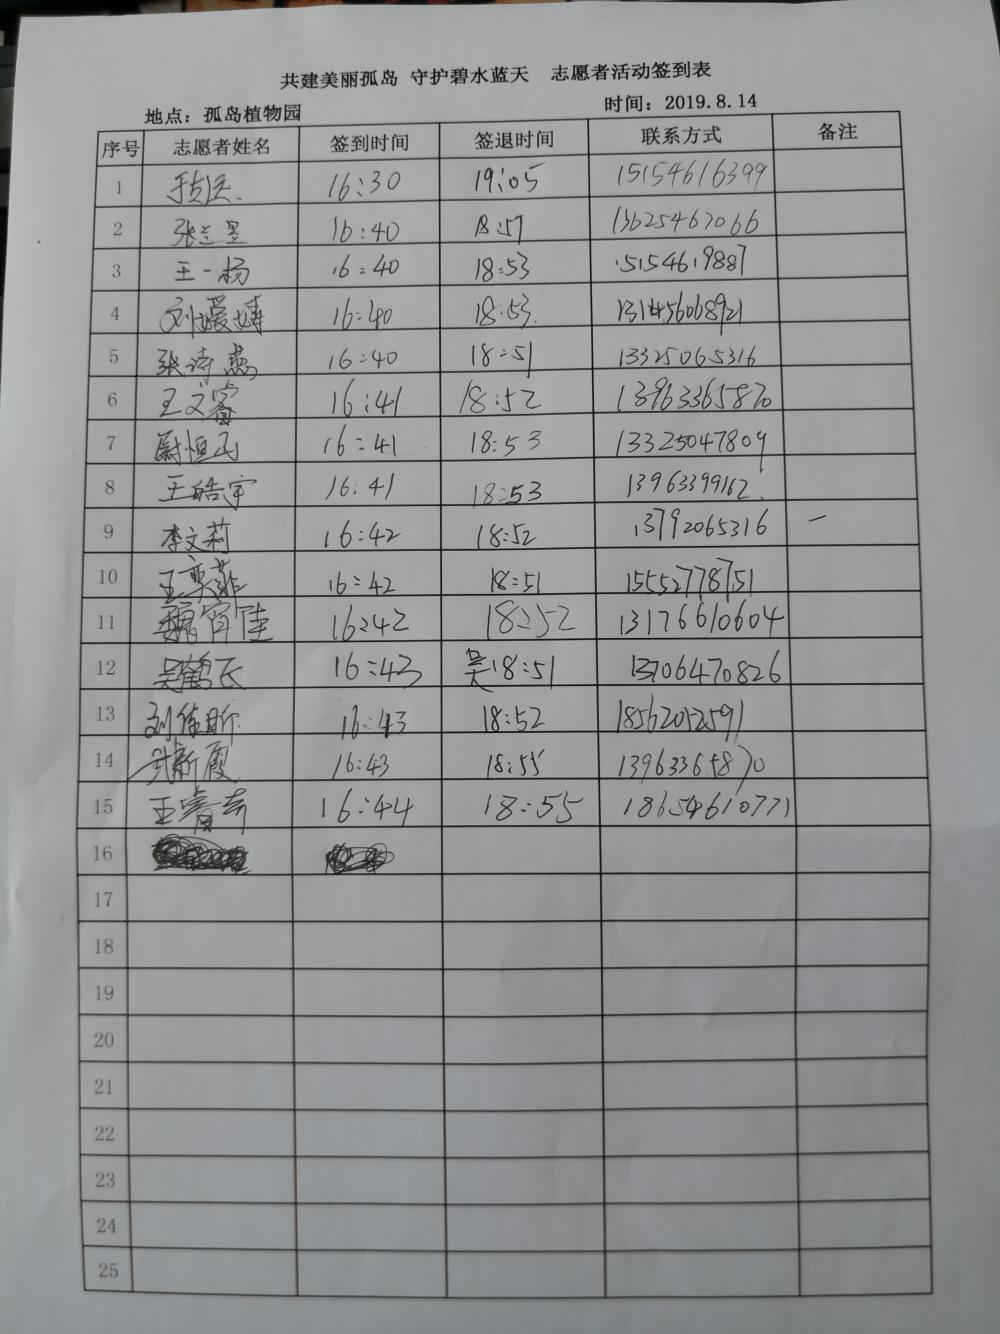 共建美丽孤岛 守护碧水蓝天 志愿者活动签到表
地点：孤岛植物园 时间：2019.8.14
序号 志愿者姓名 签到时间 签退时间 联系方式 备注
1 16:30 19:05 15154616399
2 张兰星 16:40 18:57 13625467066
3 王一杨 16:40 18:53 15154619887
4 刘媛婧 16:40 18:53
5 张诗蕊 16:40 18:51 13325065316
6 王文睿 16:41 18:52 13963365870
7 尉恒民 16:41 18:53 13325047809
8 王皓宇 16:41 18:53 13963399162
9 李文莉 16:42 18:52 13792065316 一
10 王奕菲 16:42 18:51 15552778751
11 魏宵佳 16:42 18:52 13176610604
12 吴鹤辰 16:43 吴18:51 13706470826
13 刘佳昕 16:43 18:52 18562012591
14 尉新霞 16:43 18:55 13963365870
15 王睿奇 16:44 18:55 18654610771
16
17
18
19
20
21
22
23
24
25